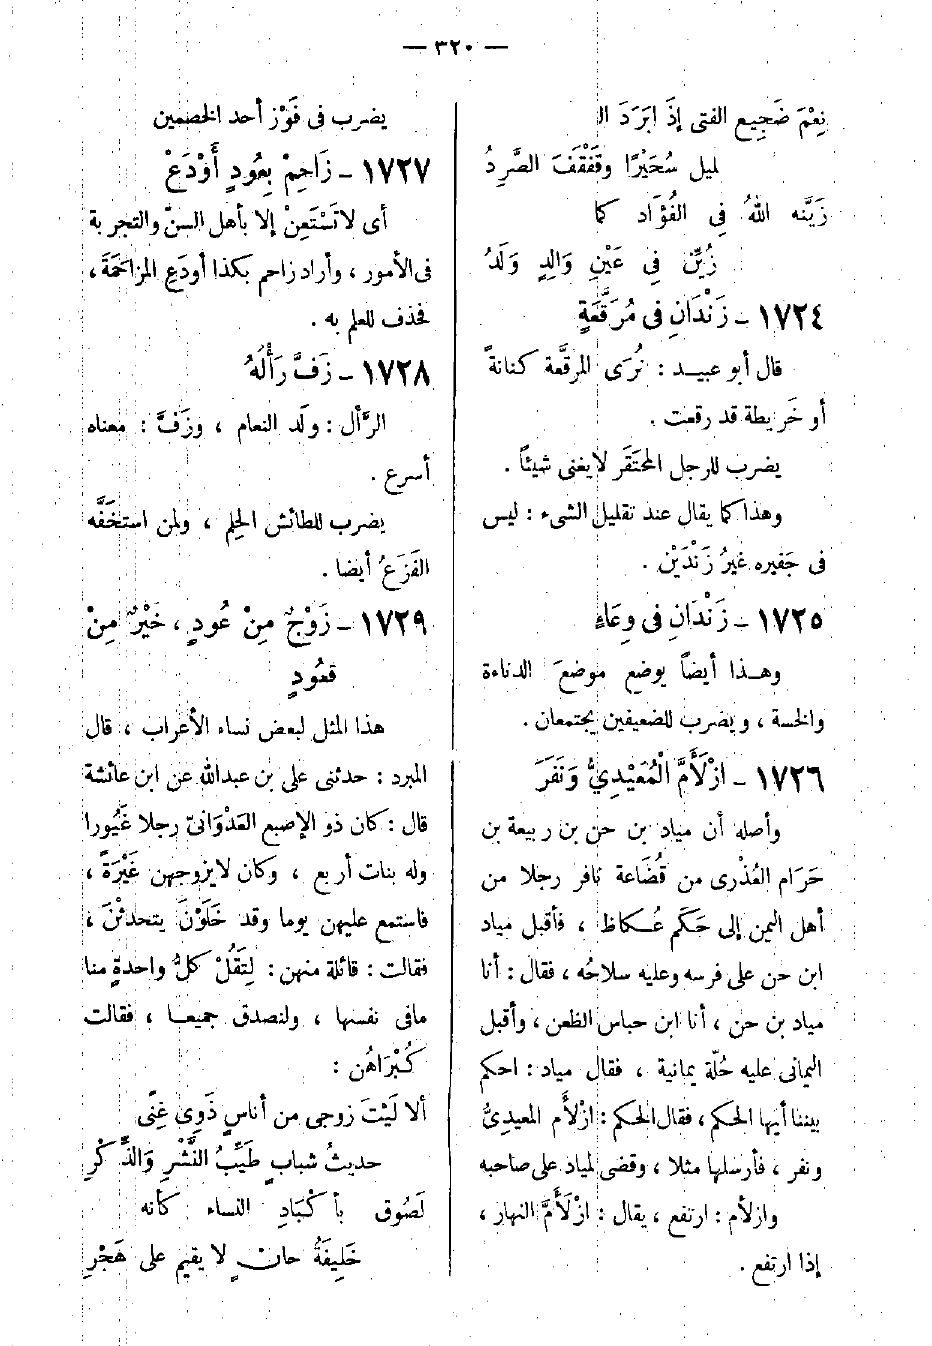 — ٣٢٠ —
نِعْمَ ضَجِيع الفتى إذَ ابَرَدَ ال
لميل سُحَيْرًا وقَفْقَفَ الصَّرِدُ
زَيَّنه اللهُ فى الفُؤَاد كما
زُيِّن فى عَيْنِ وَالِدٍ وَلَدُ
١٧٢٤ – زَنْدَانِ فى مُرَقَّعَةٍ
قال أبو عبيد : نُرَى المرقَّعة كنانةً
أو خَريطة قد رقعت .
يضرب للرجل المحتَقَر لايغنى شيئاً .
وهذا كما يقال عند تقليل الشىء : ليس
فى جَفيره غيرُ زَنْدَيْن .
١٧٢٥ – زَنْدَانِ فى وِعَاءٍ
وهذا أيضاً يوضع موضعَ الدناءة
والخسة ، ويضرب للضعيفين يجتمعان .
١٧٢٦ – ازْلَأَمَّ الْمُعَيْدِيُّ وَنَفَرَ
وأصله أن مياد بن حن بن ربيعة بن
حَرَام العُذْرى من قُضَاعة نافر رجلا من
أهل اليمن إلى حَكَم عُكاظ ، فأقبل مياد
ابن حن على فرسه وعليه سلاحُه ، فقال : أنا
مياد بن حن ، أنا ابن حباس الظعن ، وأقبل
اليمانى عليه حُلّة يمانية ، فقال مياد : احكم
بيننا أيها الحكم ، فقال الحكم : ازْلَأَم المعيدىُّ
ونفر ، فأرسلها مثلا ، وقضى لمياد على صاحبه
وازلأم : ارتفع ، يقال : ازْلَأَمَّ النهار ،
إذا ارتفع .
يضرب فى فَوْز أحد الخصمين
١٧٢٧ – زَاحِمْ بِعُودٍ أَوْ دَعْ
أى لا تَسْتَعِنْ إلا بأهل السنّ والتجربة
فى الأمور ، وأراد زاحم بكذا أودَعِ المزاحَمَةَ ،
فحذف للعلم به .
١٧٢٨ – زَفَّ رَأْلُهُ
الرَّأل : ولَد النعام ، وزَفَّ : معناه
أسرع .
يضرب للطائش الحِلم ، ولمن استخَفَّه
الفَزَعُ أيضا .
١٧٢٩ – زَوْجٌ مِنْ عُودٍ ، خَيْرٌ مِنْ
قعُودٍ
هذا المثل لبعض نساء الأعراب ، قال
المبرد : حدثنى على بن عبدالله عن ابن عائشة
قال : كان ذو الإصبع العَدْوَانىّ رجلا غَيُورا
وله بنات أربع ، وكان لايزوجهن غَيْرَةً ،
فاستمع عليهن يوما وقد خَلَوْنَ يتحدثْنَ ،
فقالت : قائلة منهن : لِتَقُلْ كلُّ واحدةٍ منا
مافى نفسها ، ولنصدق جميعا ، فقالت
كُبْرَاهُن :
ألا لَيْتَ زوجى من أناسٍ ذَوِى غِنًى
حديثُ شبابٍ طَيِّبُ النَّشْرِ وَالذِّكْرِ
لَصُوق بأكْبَادِ النساء كأنه
خَلِيفَةُ حانٍ لا يقيم على هَجْرِ